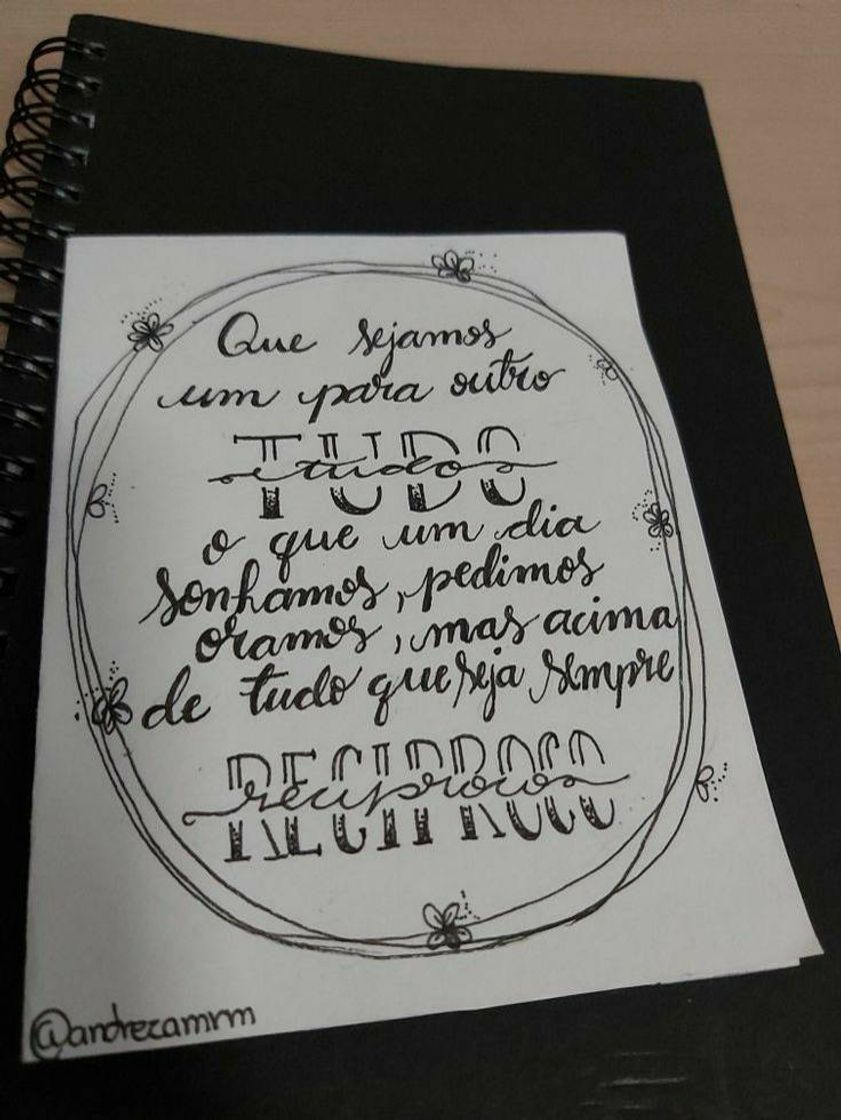 Que sejamos
um para outro
TUDO
tudo
o que um dia
sonhamos, pedimos
oramos, mas acima
de tudo que seja sempre
RECIPROCO
reciproco
@andrezamrm